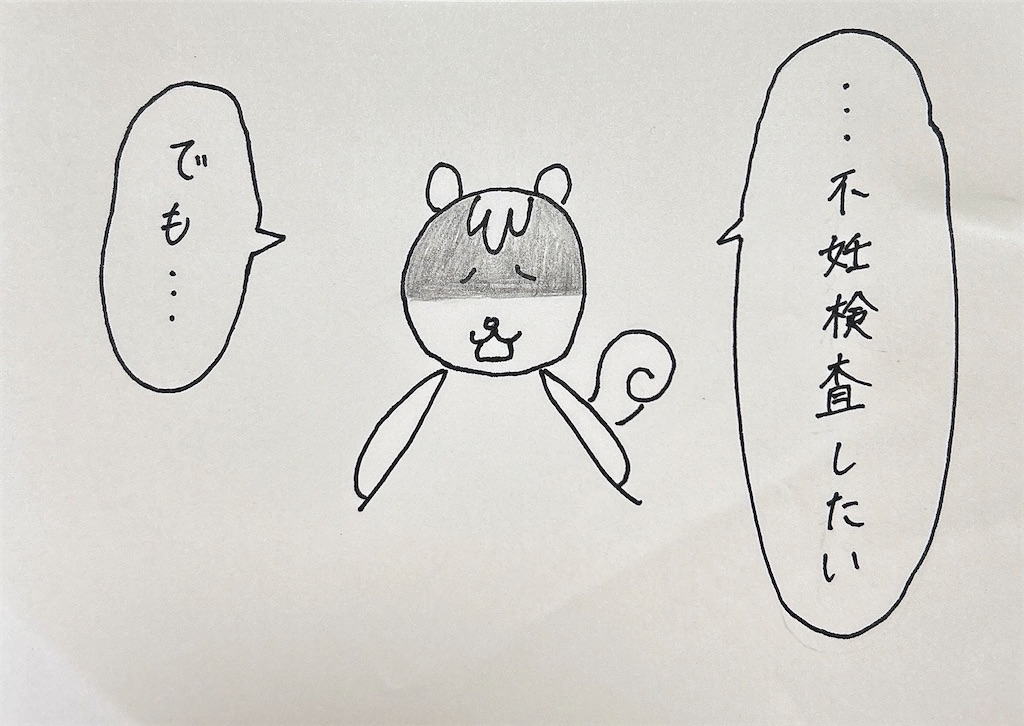 ...不妊検査したい
でも...